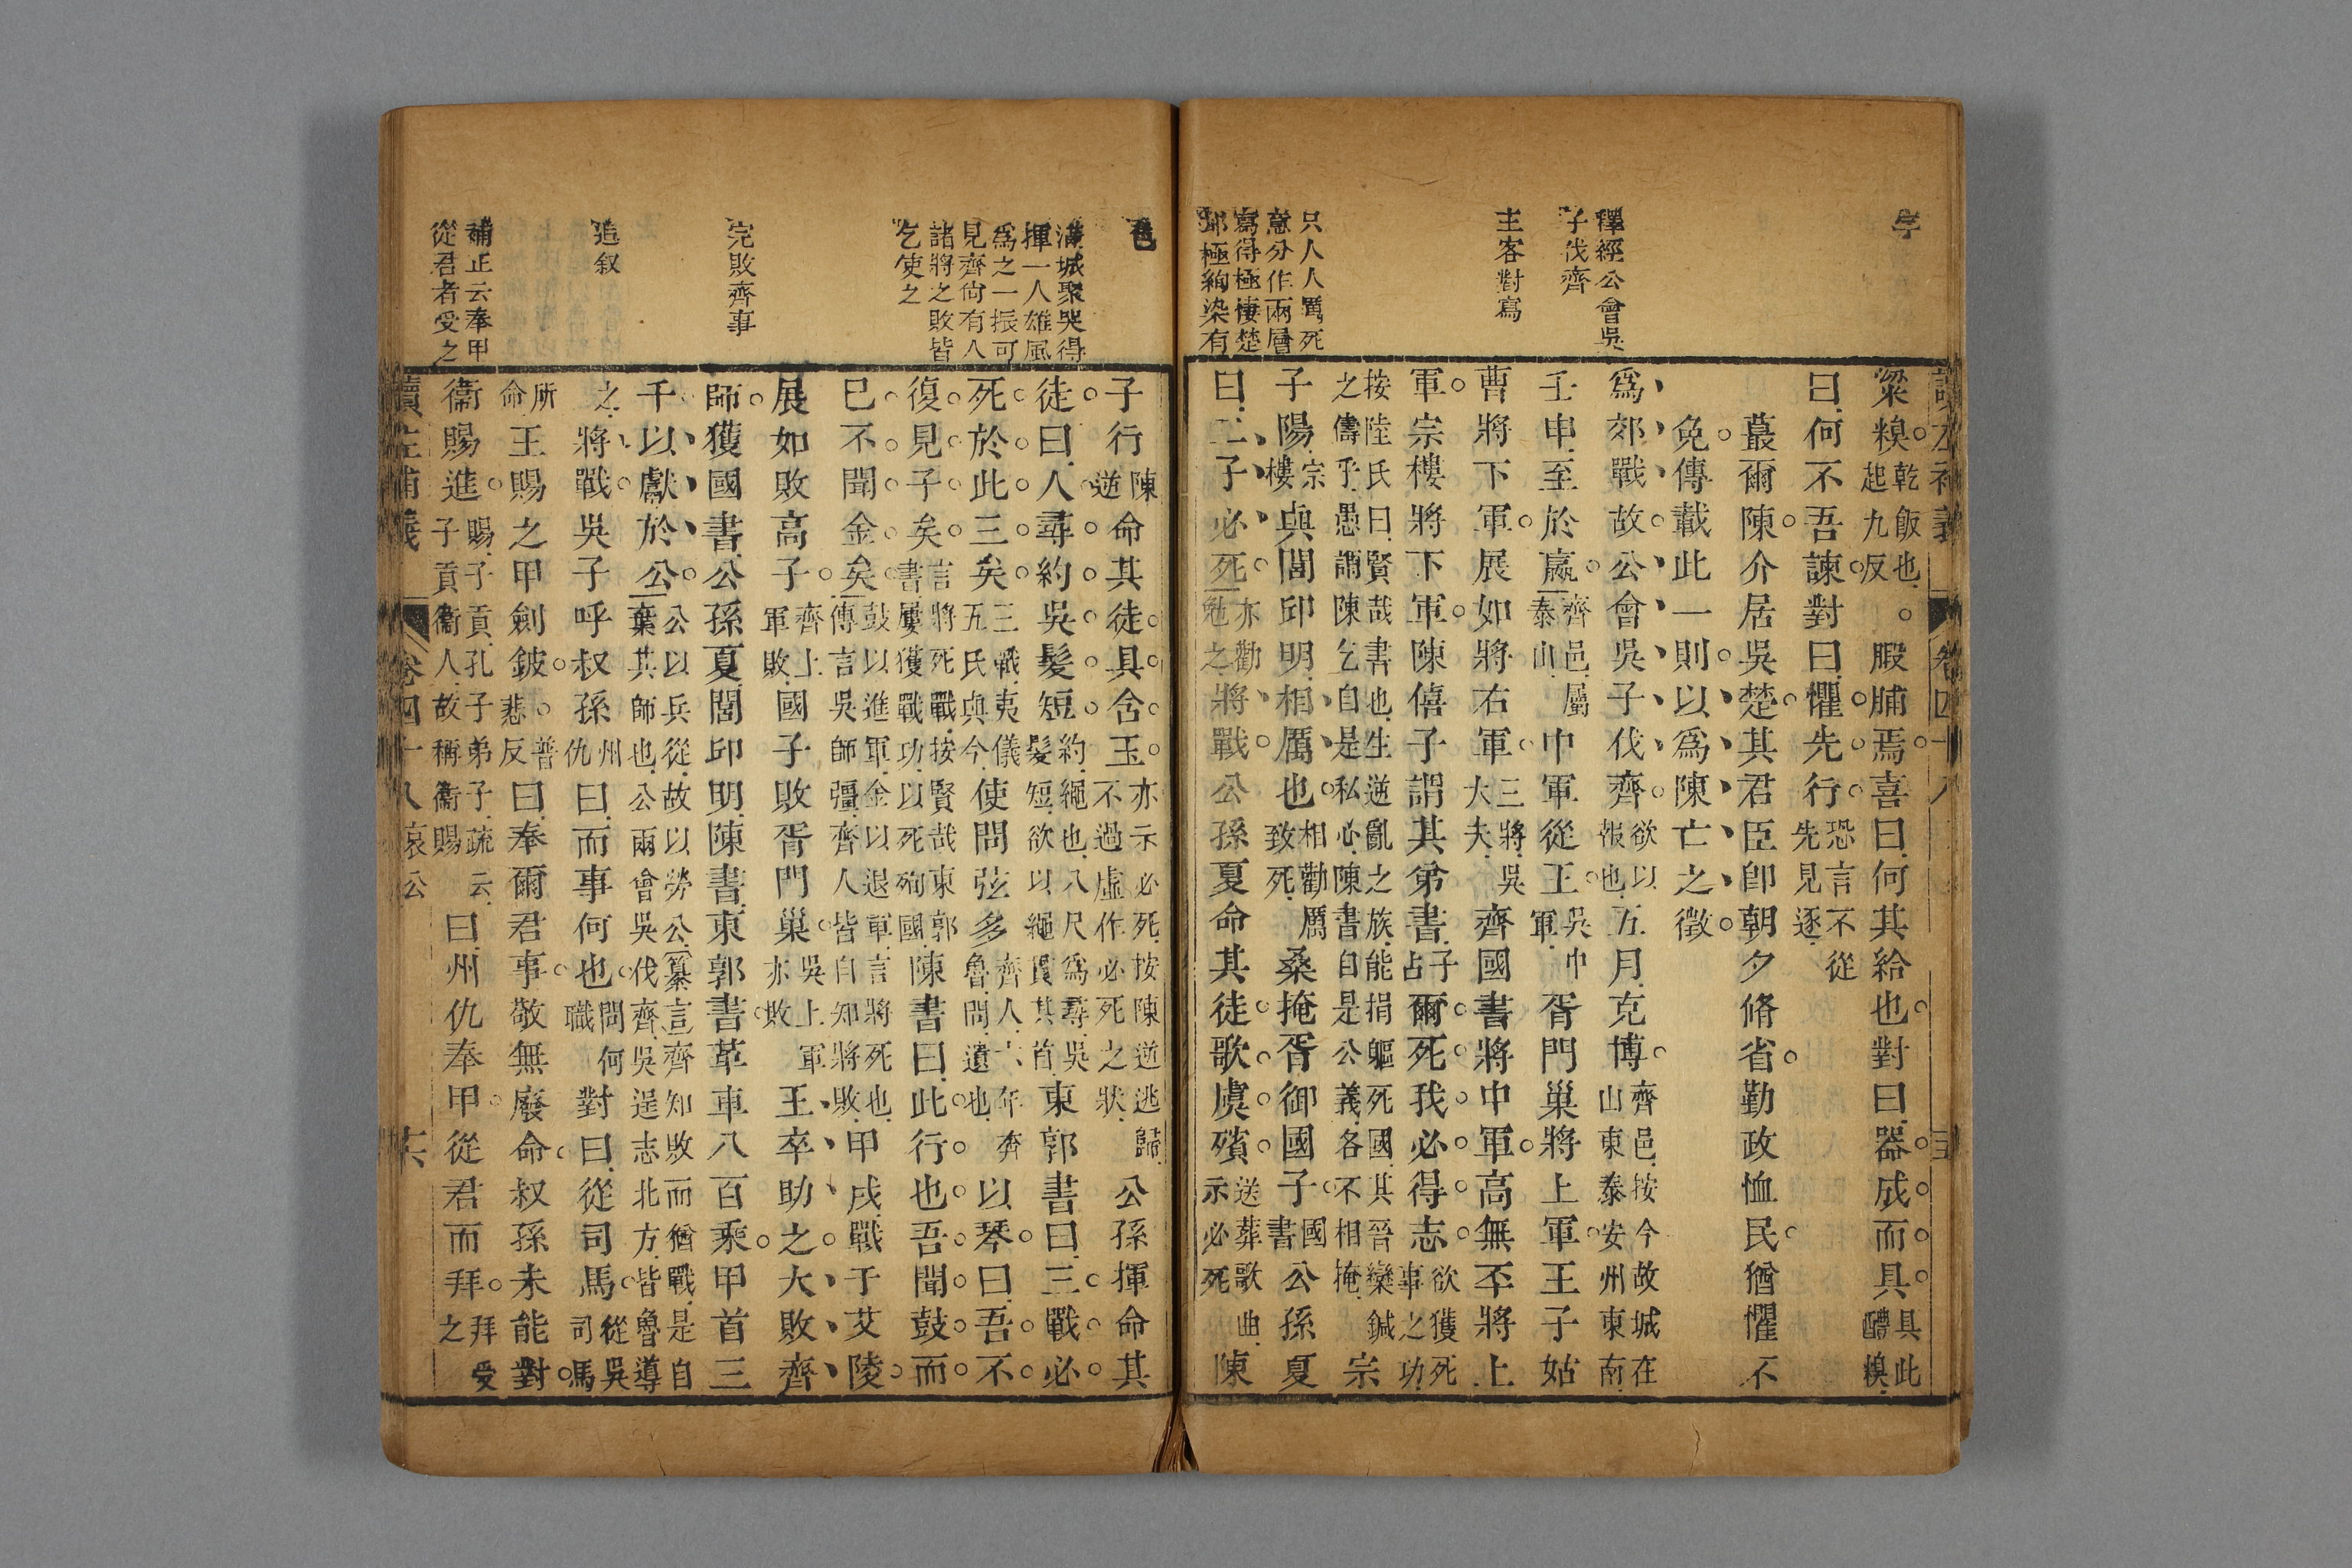 字
釋經公會吳
子伐齊
主客對寫
只人人厲死
意分作兩層
寫得極悽楚
郤極絢染有
粱糗乾飯也起九反。腶脯焉喜曰何其給也對曰器成而具具此醴糗
曰何不吾諫對曰懼先行恐言不從先見逐
蕞爾陳介居吳楚其君臣卽朝夕脩省勤政恤民猶懼不
免傳載此一則以爲陳亡之徵
爲郊戰故公會吳子伐齊欲以報也五月克博齊邑按今故城在山東泰安州東南
壬申至於嬴齊邑屬泰山中軍從王吳中軍胥門巢將上軍王子姑
曹將下軍展如將右軍三將吳大夫齊國書將中軍高無丕將上
軍宗樓將下軍陳僖子謂其弟書子占爾死我必得志欲獲死事之功
按陸氏曰賢哉書也生逆亂之族能捐軀死國其晉欒鍼之儔乎愚謂陳乞自是私心陳書自是公義各不相掩宗
子陽宗樓與閭邱明相厲也相勸厲致死桑掩胥御國子國書公孫夏
曰二子必死亦勸勉之將戰公孫夏命其徒歌虞殯送葬歌曲示必死陳
讀左補義 卷四十八
色
滿城聚哭得
揮一人雄風
爲之一振可
見齊尙有人
諸將之敗皆
乞使之
完敗齊事
追叙
補正云奉甲
從君者受之
子行陳逆命其徒具含玉亦示必死按陳逆逃歸不過虛作必死之狀公孫揮命其
徒曰人尋約吳髮短約繩也八尺爲尋吳髮短欲以繩貫其首東郭書曰三戰必
死於此三矣三戰夷儀五氏與今使問弦多齊人六年奔魯問遺也以琴曰吾不
復見子矣言將死戰按賢哉東郭書屢獲戰功以死殉國陳書曰此行也吾聞鼓而
已不聞金矣鼓以進軍金以退軍言將死也傳言吳師彊齊人皆自知將敗甲戌戰于艾陵
展如敗高子齊上軍敗國子敗胥門巢吳上軍亦敗王卒助之大敗齊
師獲國書公孫夏閭邱明陳書東郭書革車八百乘甲首三
千以獻於公公以兵從故以勞公纂言齊知敗而猶戰是自葉其師也公兩會吳伐齊吳逞志北方皆魯導
之將戰吳子呼叔孫州仇曰而事何也問何職對曰從司馬從吳司馬
所命王賜之甲劍鈹普悲反曰奉爾君事敬無廢命叔孫未能對
衞賜進賜子貢孔子弟子疏云子貢衞人故稱衞賜曰州仇奉甲從君而拜拜受之
讀左補義 卷四十八 哀公 六